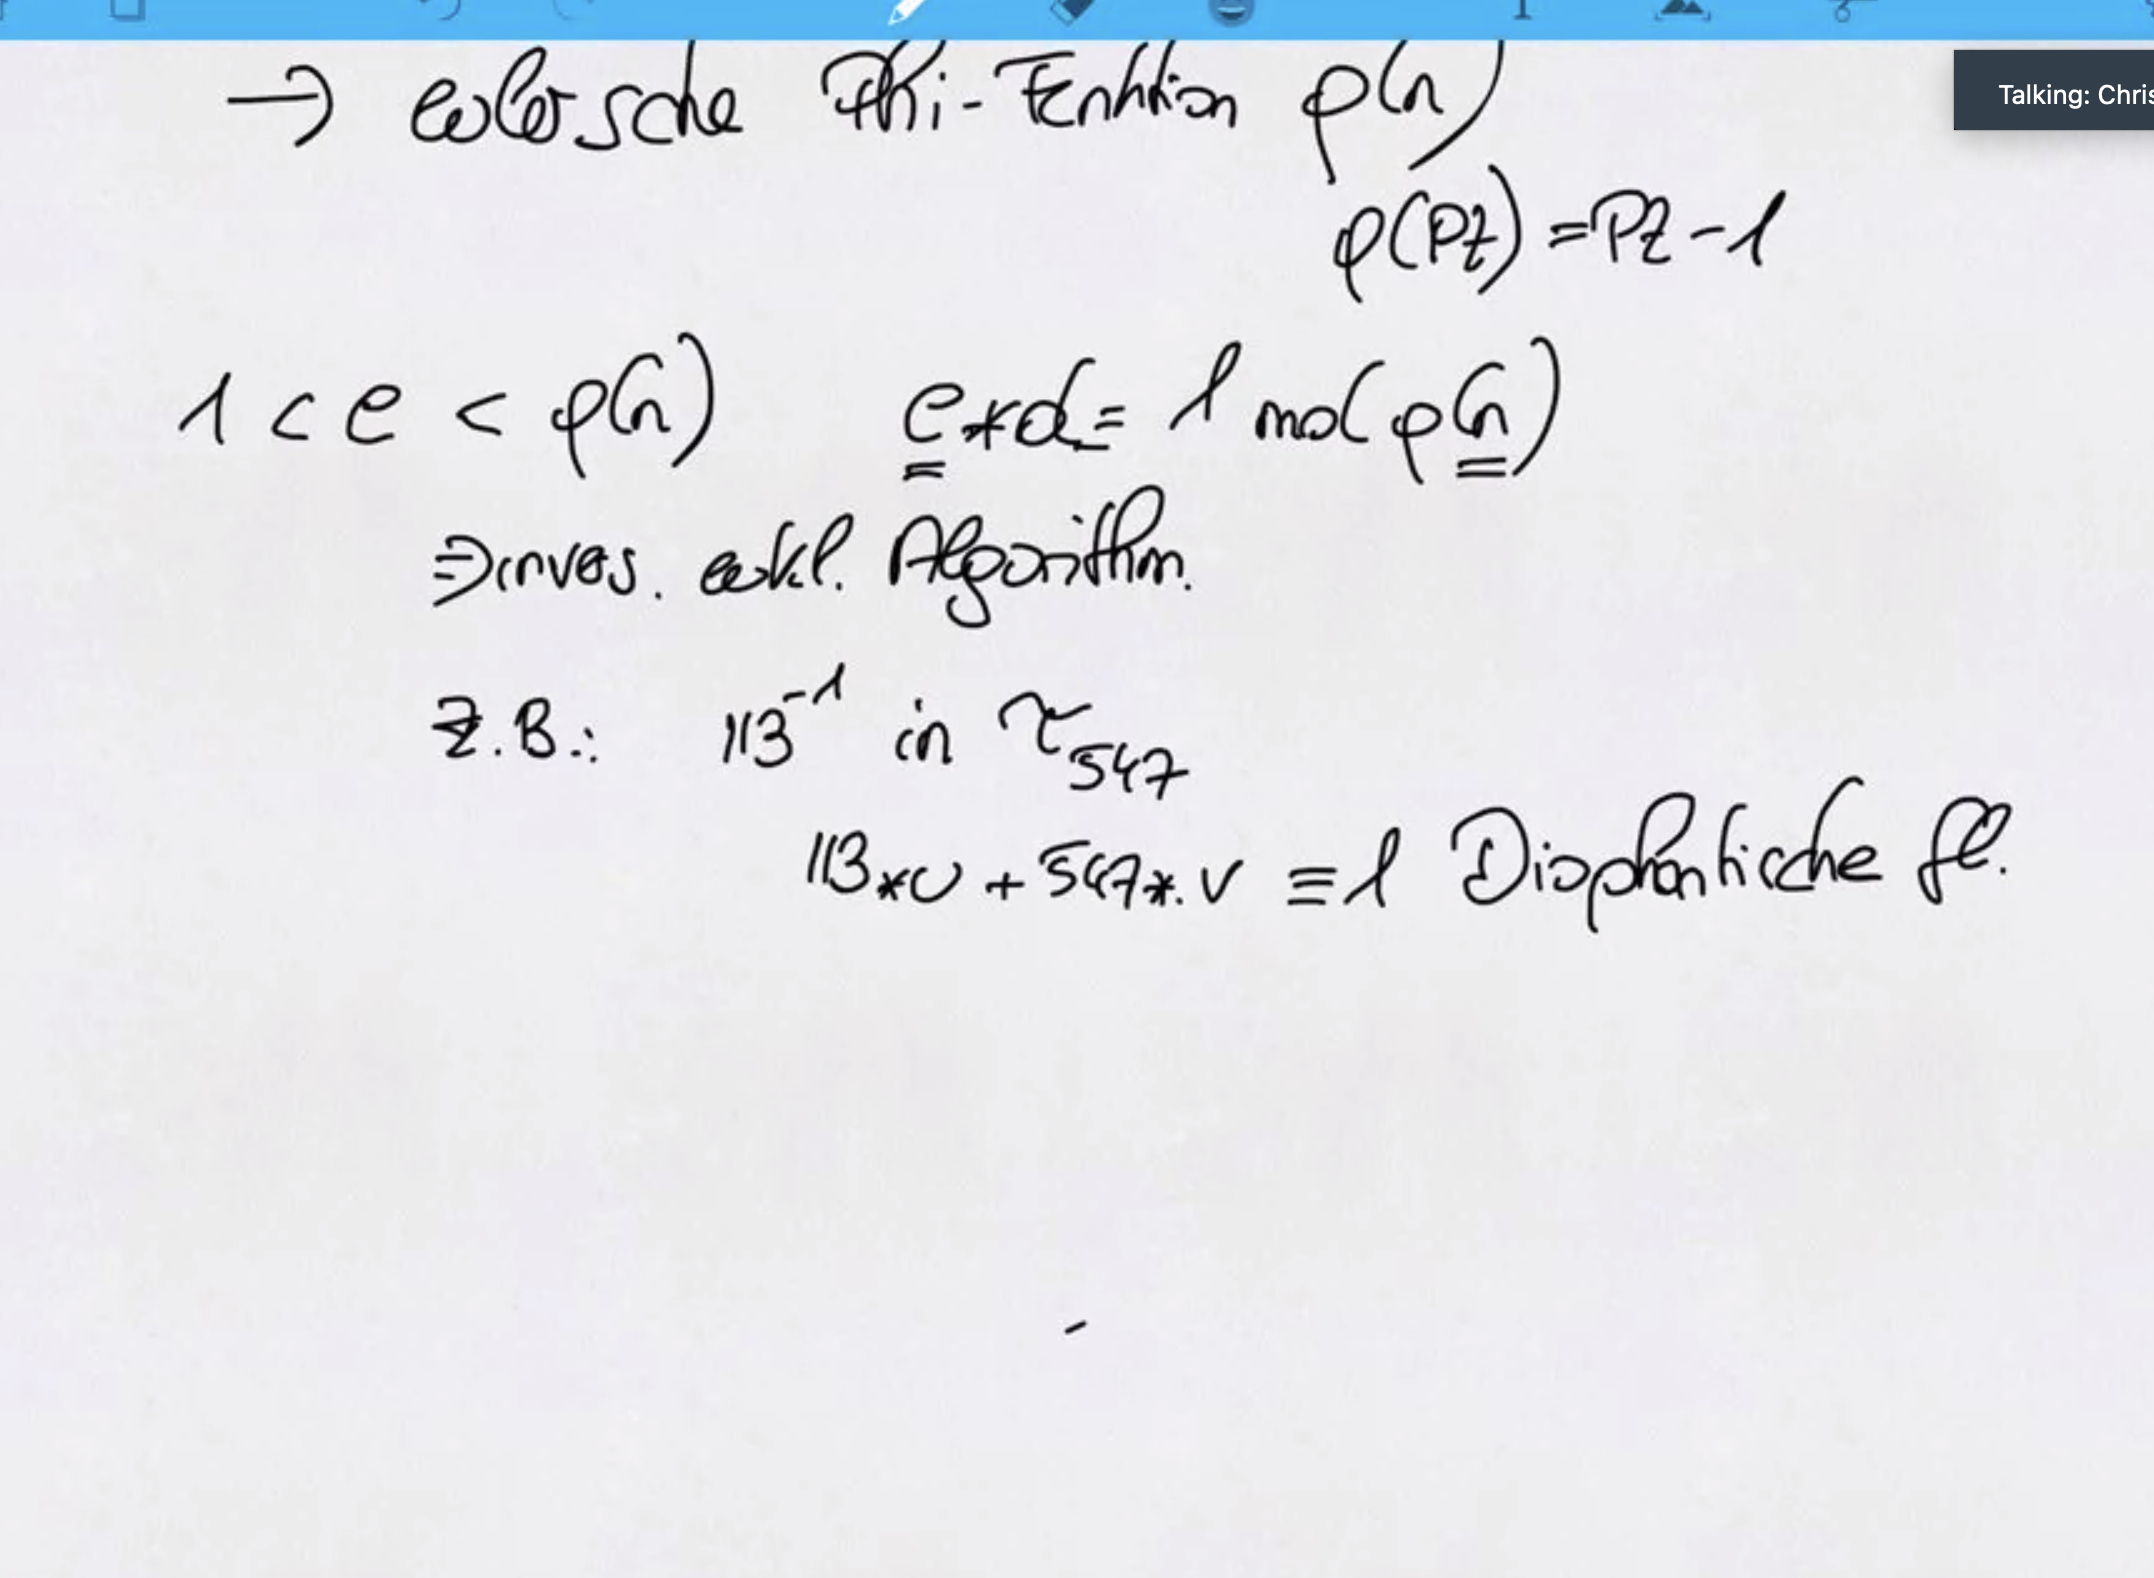 Talking: Chris
→ eulersche Phi-Funktion φ(n)
φ(PZ) = PZ - 1
1 < e < φ(n) e * d = 1 mod φ(n)
⇒ invers. eukl. Algorithm.
Z.B.: 113⁻¹ in ℤ₅₄₇
113 * u + 547 * . v ≡ 1 Diophantische Gl.